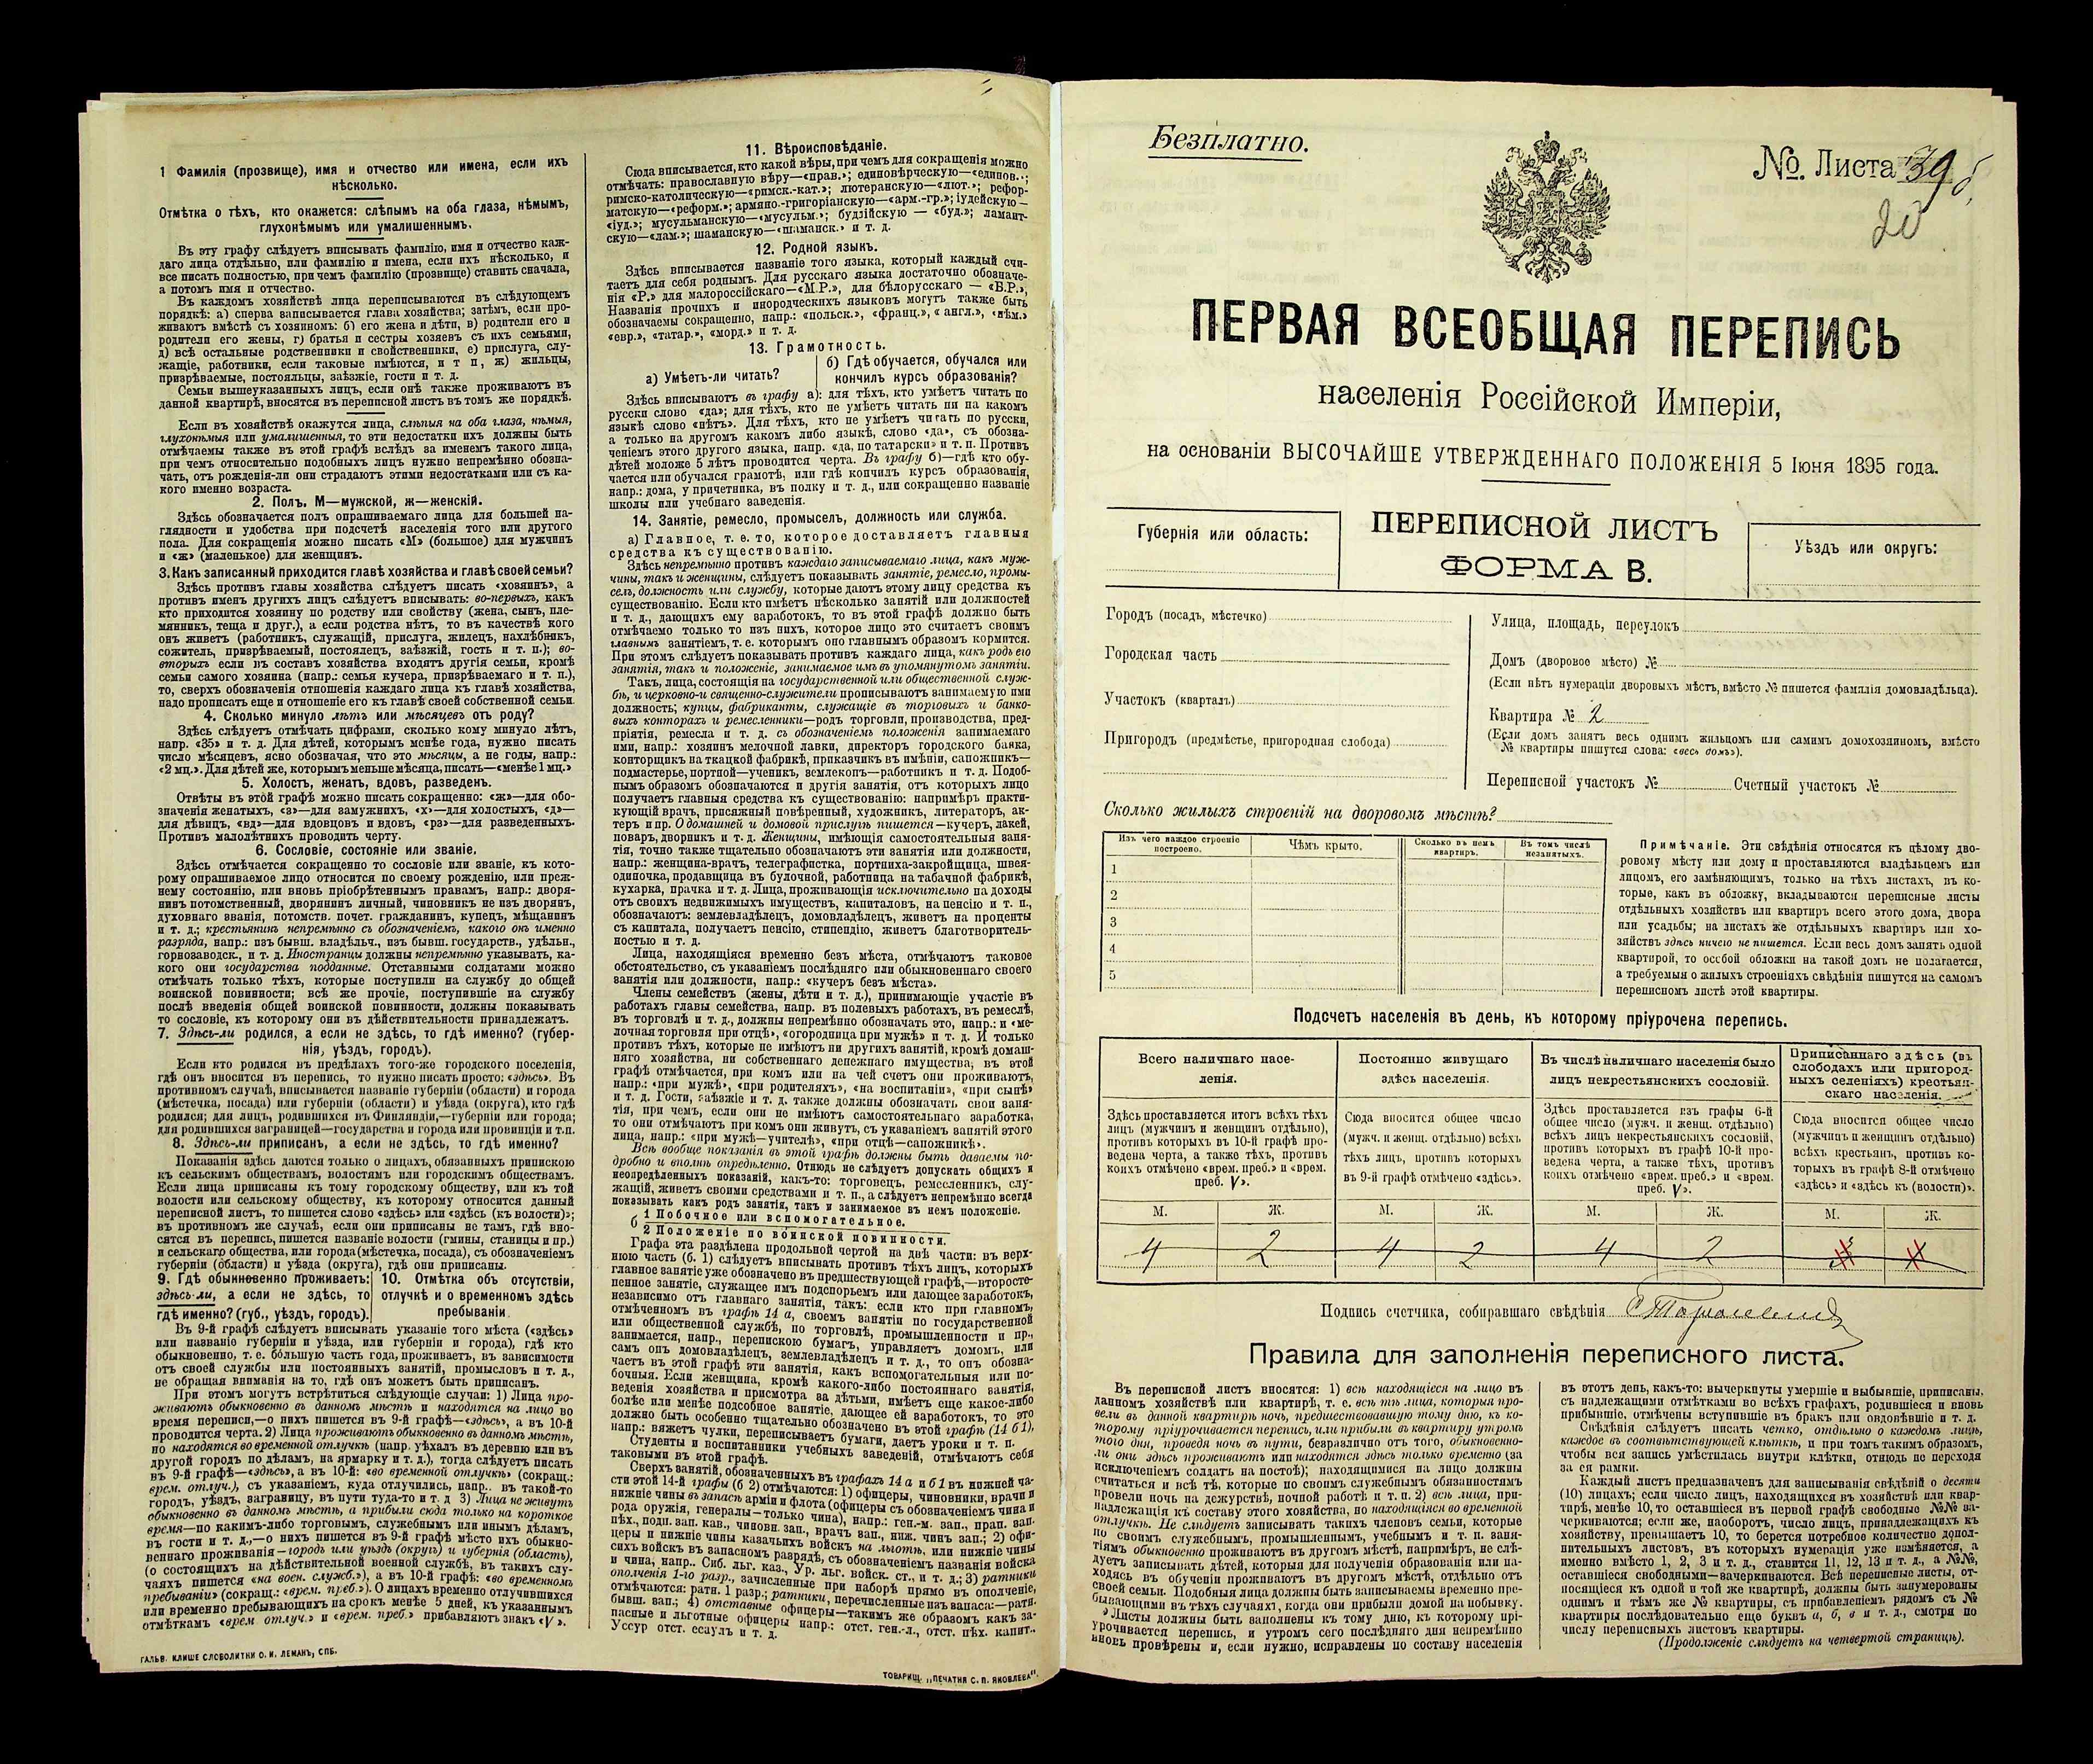 1 Фамилія (прозвище), имя и отчество или имена, если ихъ
нѣсколько.
Отмѣтка о тѣхъ, кто окажется: слѣпымъ на оба глаза, нѣмымъ,
глухонѣмымъ или умалишеннымъ.
Въ эту графу слѣдуетъ вписывать фамилію, имя и отчество каж-
даго лица отдѣльно, или фамилію и имена, если ихъ нѣсколько, и
все писать полностью, при чемъ фамилію (прозвище) ставить сначала,
а потомъ имя и отчество.
Въ каждомъ хозяйствѣ лица переписываются въ слѣдующемъ
порядкѣ: а) сперва записывается глава хозяйства; затѣмъ, если про-
живаютъ вмѣстѣ съ хозяиномъ: б) его жена и дѣти, в) родители его и
родители его жены, г) братья и сестры хозяевъ съ ихъ семьями,
д) всѣ остальные родственники и свойственники, е) прислуга, слу-
жащіе, работники, если таковые имѣются, и т п, ж) жильцы,
призрѣваемые, постояльцы, заѣзжіе, гости и т. д.
Семьи вышеуказанныхъ лицъ, если онѣ также проживаютъ въ
данной квартирѣ, вносятся въ переписной листъ въ томъ же порядкѣ.
Если въ хозяйствѣ окажутся лица, слѣпыя на оба глаза, нѣмыя,
глухонѣмыя или умалишенныя, то эти недостатки ихъ должны быть
отмѣчаемы также въ этой графѣ вслѣдъ за именемъ такого лица,
при чемъ относительно подобныхъ лицъ нужно непремѣнно обозна-
чать, отъ рожденія-ли они страдаютъ этими недостатками или съ ка-
кого именно возраста.
2. Полъ. М—мужской, ж—женскій.
Здѣсь обозначается полъ опрашиваемаго лица для большей на-
глядности и удобства при подсчетѣ населенія того или другого
пола. Для сокращенія можно писать «М» (большое) для мужчинъ
и «ж» (маленькое) для женщинъ.
3. Какъ записанный приходится главѣ хозяйства и главѣ своей семьи?
Здѣсь противъ главы хозяйства слѣдуетъ писать «хозяинъ», а
противъ именъ другихъ лицъ слѣдуетъ вписывать: во-первыхъ, какъ
кто приходится хозяину по родству или свойству (жена, сынъ, пле-
мянникъ, теща и друг.), а если родства нѣтъ, то въ качествѣ кого
онъ живетъ (работникъ, служащій, прислуга, жилецъ, нахлѣбникъ,
сожитель, призрѣваемый, постоялецъ, заѣзжій, гость и т. п.); во-
вторыхъ если въ составъ хозяйства входятъ другія семьи, кромѣ
семьи самого хозяина (напр.: семья кучера, призрѣваемаго и т. п.),
то, сверхъ обозначенія отношенія каждаго лица къ главѣ хозяйства,
надо прописать еще и отношеніе его къ главѣ своей собственной семьи.
4. Сколько минуло лѣтъ или мѣсяцевъ отъ роду?
Здѣсь слѣдуетъ отмѣчать цифрами, сколько кому минуло лѣтъ,
напр. «35» и т. д. Для дѣтей, которымъ менѣе года, нужно писать
число мѣсяцевъ, ясно обозначая, что это мѣсяцы, а не годы, напр.:
«2 мц.». Для дѣтей же, которымъ меньше мѣсяца, писать—«менѣе 1 мц.»
5. Холостъ, женатъ, вдовъ, разведенъ.
Отвѣты въ этой графѣ можно писать сокращенно: «ж»—для обо-
значенія женатыхъ, «з»—для замужнихъ, «х»—для холостыхъ, «д»—
для дѣвицъ, «вд»—для вдовцовъ и вдовъ, «рз»—для разведенныхъ.
Противъ малолѣтнихъ проводить черту.
6. Сословіе, состояніе или званіе.
Здѣсь отмѣчается сокращенно то сословіе или званіе, къ кото-
рому опрашиваемое лицо относится по своему рожденію, или преж-
нему состоянію, или вновь пріобрѣтеннымъ правамъ, напр.: дворя-
нинъ потомственный, дворянинъ личный, чиновникъ не изъ дворянъ,
духовнаго званія, потомств. почет. гражданинъ, купецъ, мѣщанинъ
и т. д.; крестьянинъ непремѣнно съ обозначеніемъ, какого онъ именно
разряда, напр.: изъ бывш. владѣльч., изъ бывш. государств., удѣльн.,
горнозаводск., и т. д. Иностранцы должны непремѣнно указывать, ка-
кого они государства подданные. Отставными солдатами можно
отмѣчать только тѣхъ, которые поступили на службу до общей
воинской повинности; всѣ же прочіе, поступившіе на службу
послѣ введенія общей воинской повинности, должны показывать
то сословіе, къ которому они въ дѣйствительности принадлежатъ.
7. Здѣсь-ли родился, а если не здѣсь, то гдѣ именно? (губер-
нія, уѣздъ, городъ).
Если кто родился въ предѣлахъ того-же городского поселенія,
гдѣ онъ вносится въ перепись, то нужно писать просто: «здѣсь». Въ
противномъ случаѣ, вписывается названіе губерніи (области) и города
(мѣстечка, посада) или губерніи (области) и уѣзда (округа), кто гдѣ
родился; для лицъ, родившихся въ Финляндіи,—губерніи или города;
для родившихся заграницей—государства и города или провинціи и т.п.
8. Здѣсь-ли приписанъ, а если не здѣсь, то гдѣ именно?
Показанія здѣсь даются только о лицахъ, обязанныхъ припискою
къ сельскимъ обществамъ, волостямъ или городскимъ обществамъ.
Если лица приписаны къ тому городскому обществу, или къ той
волости или сельскому обществу, къ которому относится данный
переписной листъ, то пишется слово «здѣсь» или «здѣсь (къ волости)»;
въ противномъ же случаѣ, если они приписаны не тамъ, гдѣ вно-
сятся въ перепись, пишется названіе волости (гмины, станицы и пр.)
и сельскаго общества, или города (мѣстечка, посада), съ обозначеніемъ
губерніи (области) и уѣзда (округа), гдѣ они приписаны.
9. Гдѣ обыкновенно проживаетъ:
здѣсь-ли, а если не здѣсь, то
гдѣ именно? (губ., уѣздъ, городъ).
10. Отмѣтка объ отсутствіи,
отлучкѣ и о временномъ здѣсь
пребываніи.
Въ 9-й графѣ слѣдуетъ вписывать указаніе того мѣста («здѣсь»
или названіе губерніи и уѣзда, или губерніи и города), гдѣ кто
обыкновенно, т. е. бо́льшую часть года, проживаетъ, въ зависимости
отъ своей службы или постоянныхъ занятій, промысловъ и т. д.,
не обращая вниманія на то, гдѣ онъ можетъ быть приписанъ.
При этомъ могутъ встрѣтиться слѣдующіе случаи: 1) Лица про-
живаютъ обыкновенно въ данномъ мѣстѣ и находятся на лицо во
время переписи,—о нихъ пишется въ 9-й графѣ—«здѣсь», а въ 10-й
проводится черта. 2) Лица проживаютъ обыкновенно въ данномъ мѣстѣ,
но находятся во временной отлучкѣ (напр. уѣхалъ въ деревню или въ
другой городъ по дѣламъ, на ярмарку и т. д.), тогда слѣдуетъ писать
въ 9-й графѣ—«здѣсь», а въ 10-й: «во временной отлучкѣ» (сокращ.:
врем. отлуч.), съ указаніемъ, куда отлучились, напр.. въ такой-то
городъ, уѣздъ, заграницу, въ пути туда-то и т. д 3) Лица не живутъ
обыкновенно въ данномъ мѣстѣ, а прибыли сюда только на короткое
время—по какимъ-либо торговымъ, служебнымъ или инымъ дѣламъ,
въ гости и т. д.,—о нихъ пишется въ 9-й графѣ мѣсто ихъ обыкно-
веннаго проживанія—городъ или уѣздъ (округъ) и губернія (область),
(о состоящихъ на дѣйствительной военной службѣ, въ такихъ слу-
чаяхъ пишется «на воен. служб.»), а въ 10-й графѣ: «во временномъ
пребываніи» (сокращ.: «врем. преб.»). О лицахъ временно отлучившихся
или временно пребывающихъ на срокъ менѣе 5 дней, къ указаннымъ
отмѣткамъ «врем. отлуч.» и «врем. преб.» прибавляютъ знакъ «V».
ГАЛЬВ. КЛИШЕ СЛОВОЛИТНИ О. И. ЛЕМАНЪ, СПБ.
11. Вѣроисповѣданіе.
Сюда вписывается, кто какой вѣры, при чемъ для сокращенія можно
отмѣчать: православную вѣру—«прав.»; единовѣрческую—«единов.»;
римско-католическую—«римск.-кат.»; лютеранскую—«лют.»; рефор-
матскую—«реформ.»; армяно.-григоріанскую—«арм.-гр.»; іудейскую—
«іуд.»; мусульманскую—«мусульм.»; буддійскую — «буд.»; ламаит-
скую—«лам.»; шаманскую—«шаманск.» и т. д.
12. Родной языкъ.
Здѣсь вписывается названіе того языка, который каждый счи-
таетъ для себя роднымъ. Для русскаго языка достаточно обозначе-
нія «Р.» для малороссійскаго—«М.Р.», для бѣлорусскаго — «Б.Р.»,
Названія прочихъ и инородческихъ языковъ могутъ также быть
обозначаемы сокращенно, напр.: «польск.», «франц.», « англ.», «нѣм.»
«евр.», «татар.», «морд.» и т. д.
13. Грамотность.
а) Умѣетъ-ли читать?
б) Гдѣ обучается, обучался или
кончилъ курсъ образованія?
Здѣсь вписываютъ въ графу а): для тѣхъ, кто умѣетъ читать по
русски слово «да»; для тѣхъ, кто не умѣетъ читать ни на какомъ
языкѣ слово «нѣтъ». Для тѣхъ, кто не умѣетъ читать по русски,
а только на другомъ какомъ либо языкѣ, слово «да», съ обозна-
ченіемъ этого другого языка, напр. «да, по татарски» и т. п. Противъ
дѣтей моложе 5 лѣтъ проводится черта. Въ графу б)—гдѣ кто обу-
чается или обучался грамотѣ, или гдѣ кончилъ курсъ образованія,
напр.: дома, у причетника, въ полку и т. д., или сокращенно названіе
школы или учебнаго заведенія.
14. Занятіе, ремесло, промыселъ, должность или служба.
а) Главное, т. е. то, которое доставляетъ главныя
средства къ существованію.
Здѣсь непремѣнно противъ каждаго записываемаго лица, какъ муж-
чины, такъ и женщины, слѣдуетъ показывать занятіе, ремесло, промы-
селъ, должность или службу, которые даютъ этому лицу средства къ
существованію. Если кто имѣетъ нѣсколько занятій или должностей
и т. д., дающихъ ему заработокъ, то въ этой графѣ должно быть
отмѣчаемо только то изъ нихъ, которое лицо это считаетъ своимъ
главнымъ занятіемъ, т. е. которымъ оно главнымъ образомъ кормится.
При этомъ слѣдуетъ показывать противъ каждаго лица, какъ родъ его
занятія, такъ и положеніе, занимаемое имъ въ упомянутомъ занятіи.
Такъ, лица, состоящія на государственной или общественной служ-
бѣ, и церковно-и священно-служители прописываютъ занимаемую ими
должность; купцы, фабриканты, служащіе въ торговыхъ и банко-
выхъ конторахъ и ремесленники—родъ торговли, производства, пред-
пріятія, ремесла и т. д. съ обозначеніемъ положенія занимаемаго
ими, напр.: хозяинъ мелочной лавки, директоръ городского банка,
конторщикъ на ткацкой фабрикѣ, приказчикъ въ имѣніи, сапожникъ—
подмастерье, портной—ученикъ, землекопъ—работникъ и т. д. Подоб-
нымъ образомъ обозначаются и другія занятія, отъ которыхъ лицо
получаетъ главныя средства къ существованію: напримѣръ практи-
кующій врачъ, присяжный повѣренный, художникъ, литераторъ, ак-
теръ и пр. О домашней и домовой прислугѣ пишется—кучеръ, лакей,
поваръ, дворникъ и т. д. Женщины, имѣющія самостоятельныя заня-
тія, точно также тщательно обозначаютъ эти занятія или должности,
напр.: женщина-врачъ, телеграфистка, портниха-закройщица, швея-
одиночка, продавщица въ булочной, работница на табачной фабрикѣ,
кухарка, прачка и т. д. Лица, проживающія исключительно на доходы
отъ своихъ недвижимыхъ имуществъ, капиталовъ, на пенсію и т. п.,
обозначаютъ: землевладѣлецъ, домовладѣлецъ, живетъ на проценты
съ капитала, получаетъ пенсію, стипендію, живетъ благотворитель-
ностью и т. д.
Лица, находящіяся временно безъ мѣста, отмѣчаютъ таковое
обстоятельство, съ указаніемъ послѣдняго или обыкновеннаго своего
занятія или должности, напр.: «кучеръ безъ мѣста».
Члены семействъ (жены, дѣти и т. д.), принимающіе участіе въ
работахъ главы семейства, напр. въ полевыхъ работахъ, въ ремеслѣ,
въ торговлѣ и т. д., должны непремѣнно обозначать это, напр.: и «ме-
лочная торговля при отцѣ», «огородница при мужѣ» и т. д. И только
противъ тѣхъ, которые не имѣютъ ни другихъ занятій, кромѣ домаш-
няго хозяйства, ни собственнаго денежнаго имущества, въ этой
графѣ отмѣчается, при комъ или на чей счетъ они проживаютъ,
напр.: «при мужѣ», «при родителяхъ», «на воспитаніи», «при сынѣ»
и т. д. Гости, заѣзжіе и т. д. также должны обозначать свои заня-
тія, при чемъ, если они не имѣютъ самостоятельнаго заработка,
то они отмѣчаютъ при комъ они живутъ, съ указаніемъ занятій этого
лица, напр.: «при мужѣ—учителѣ», «при отцѣ—сапожникѣ».
Всѣ вообще показанія въ этой графѣ должны быть даваемы по-
дробно и вполнѣ опредѣленно. Отнюдь не слѣдуетъ допускать общихъ и
неопредѣленныхъ показаній, какъ-то: торговецъ, ремесленникъ, слу-
жащій, живетъ своими средствами и т. п., а слѣдуетъ непремѣнно всегда
показывать какъ родъ занятія, такъ и занимаемое въ немъ положеніе.
б 1 Побочное или вспомогательное.
2 Положеніе по воинской повинности.
Графа эта раздѣлена продольной чертой на двѣ части: въ верх-
нюю часть (б. 1) слѣдуетъ вписывать противъ тѣхъ лицъ, которыхъ
главное занятіе уже обозначено въ предшествующей графѣ,—второсте-
пенное занятіе, служащее имъ подспорьемъ или дающее заработокъ,
независимо отъ главнаго занятія, такъ: если кто при главномъ,
отмѣченномъ въ графѣ 14 а, своемъ занятіи по государственной
или общественной службѣ, по торговлѣ, промышленности и пр.,
занимается, напр., перепискою бумагъ, управляетъ домомъ, или
самъ онъ домовладѣлецъ, землевладѣлецъ и т. д., то онъ обозна-
чаетъ въ этой графѣ эти занятія, какъ вспомогательныя или по-
бочныя. Если женщина, кромѣ какого-либо постояннаго занятія,
веденія хозяйства и присмотра за дѣтьми, имѣетъ еще какое-либо
болѣе или менѣе подсобное занятіе, дающее ей заработокъ, то это
должно быть особенно тщательно обозначено въ этой графѣ (14 б 1),
напр.: вяжетъ чулки, переписываетъ бумаги, даетъ уроки и т. п.
Студенты и воспитанники учебныхъ заведеній, отмѣчаютъ себя
таковыми въ этой графѣ.
Сверхъ занятій, обозначенныхъ въ графахъ 14 а и б 1 въ нижней ча-
сти этой 14-й графы (б 2) отмѣчаются: 1) офицеры, чиновники, врачи и
нижніе чины въ запасѣ арміи и флота (офицеры съ обозначеніемъ чина и
рода оружія, генералы—только чина), напр.: ген.-м. зап., прап. зап.
пѣх., подп. зап. кав., чиновн. зап., врачъ зап., ниж. чинъ зап.; 2) офи-
церы и нижніе чины казачьихъ войскъ на льготѣ, или нижніе чины
сихъ войскъ въ запасномъ разрядѣ, съ обозначеніемъ названія войска
и чина, напр.. Сиб. льг. каз., Ур. льг. войск. ст., и т. д.; 3) ратники
ополченія 1-го разр., зачисленные при наборѣ прямо въ ополченіе,
отмѣчаются: ратн. 1 разр.; ратники, перечисленные изъ запаса:—ратн.
бывш. зап.; 4) отставные офицеры—такимъ же образомъ какъ за-
пасные и льготные офицеры напр.: отст. ген.-л., отст. пѣх. капит..
Уссур отст. есаулъ и т. д.
ТОВАРИЩ. „ПЕЧАТНЯ С. П. ЯКОВЛЕВА“.
Безплатно.
№. Листа 39б.
20
ПЕРВАЯ ВСЕОБЩАЯ ПЕРЕПИСЬ
населенія Россійской Имперіи,
на основаніи ВЫСОЧАЙШЕ УТВЕРЖДЕННАГО ПОЛОЖЕНІЯ 5 Іюня 1895 года.
Губернія или область:
ПЕРЕПИСНОЙ ЛИСТЪ
ФОРМА В.
Уѣздъ или округъ:
Городъ (посадъ, мѣстечко)
Городская часть
Участокъ (кварталъ)
Пригородъ (предмѣстье, пригородная слобода)
Улица, площадь, переулокъ
Домъ (дворовое мѣсто) №
(Если нѣтъ нумераціи дворовыхъ мѣстъ, вмѣсто № пишется фамилія домовладѣльца).
Квартира № 2
(Если домъ занятъ весь однимъ жильцомъ или самимъ домохозяиномъ, вмѣсто
№ квартиры пишутся слова: «весь домъ»).
Переписной участокъ № Счетный участокъ №
Сколько жилыхъ строеній на дворовомъ мѣстѣ?
Изъ чего каждое строеніе построено.
Чѣмъ крыто.
Сколько въ немъ квартиръ.
Въ томъ числѣ незанятыхъ.
1
2
3
4
5
Примѣчаніе. Эти свѣдѣнія относятся къ цѣлому дво-
ровому мѣсту или дому и проставляются владѣльцемъ или
лицомъ, его замѣняющимъ, только на тѣхъ листахъ, въ ко-
торые, какъ въ обложку, вкладываются переписные листы
отдѣльныхъ хозяйствъ или квартиръ всего этого дома, двора
или усадьбы; на листахъ же отдѣльныхъ квартиръ или хо-
зяйствъ здѣсь ничего не пишется. Если весь домъ занятъ одной
квартирой, то особой обложки на такой домъ не полагается,
а требуемыя о жилыхъ строеніяхъ свѣдѣнія пишутся на самомъ
переписномъ листѣ этой квартиры.
Подсчетъ населенія въ день, къ которому пріурочена перепись.
Всего наличнаго насе-
ленія.
Постоянно живущаго
здѣсь населенія.
Въ числѣ наличнаго населенія было
лицъ некрестьянскихъ сословій.
Приписаннаго здѣсь (въ
слободахъ или пригород-
ныхъ селеніяхъ) крестьян-
скаго населенія.
Здѣсь проставляется итогъ всѣхъ тѣхъ
лицъ (мужчинъ и женщинъ отдѣльно),
противъ которыхъ въ 10-й графѣ про-
ведена черта, а также тѣхъ, противъ
коихъ отмѣчено «врем. преб.» и «врем.
преб. V».
Сюда вносится общее число
(мужч. и женщ. отдѣльно) всѣхъ
тѣхъ лицъ, противъ которыхъ
въ 9-й графѣ отмѣчено «здѣсь».
Здѣсь проставляется изъ графы 6-й
общее число (мужч. и женщ. отдѣльно)
всѣхъ лицъ некрестьянскихъ сословій,
противъ которыхъ въ графѣ 10-й про-
ведена черта, а также тѣхъ, противъ
коихъ отмѣчено «врем. преб.» и «врем.
преб. V».
Сюда вносится общее число
(мужчинъ и женщинъ отдѣльно)
всѣхъ крестьянъ, противъ ко-
торыхъ въ графѣ 8-й отмѣчено
«здѣсь» и «здѣсь къ (волости)».
М. Ж. М. Ж. М. Ж. М. Ж.
4 2 4 2 4 2
Подпись счетчика, собиравшаго свѣдѣнія
Правила для заполненія переписного листа.
Въ переписной листъ вносятся: 1) всѣ находящіеся на лицо въ
данномъ хозяйствѣ или квартирѣ, т. е. всѣ тѣ лица, которыя про-
вели въ данной квартирѣ ночь, предшествовавшую тому дню, къ ко-
торому пріурочивается перепись, или прибыли въ квартиру утромъ
того дня, проведя ночь въ пути, безразлично отъ того, обыкновенно-
ли они здѣсь проживаютъ или находятся здѣсь только временно (за
исключеніемъ солдатъ на постоѣ); находящимися на лицо должны
считаться и всѣ тѣ, которые по своимъ служебнымъ обязанностямъ
провели ночь на дежурствѣ, ночной работѣ и т. п. 2) всѣ лица, при-
надлежащія къ составу этого хозяйства, но находящіяся во временной
отлучкѣ. Не слѣдуетъ записывать такихъ членовъ семьи, которые
по своимъ служебнымъ, промышленнымъ, учебнымъ и т. п. заня-
тіямъ обыкновенно проживаютъ въ другомъ мѣстѣ, напримѣръ, не слѣ-
дуетъ записывать дѣтей, которыя для полученія образованія или на-
ходясь въ обученіи проживаютъ въ другомъ мѣстѣ, отдѣльно отъ
своей семьи. Подобныя лица должны быть записываемы временно пре-
бывающими въ тѣхъ случаяхъ, когда они прибыли домой на побывку.
Листы должны быть заполнены къ тому дню, къ которому прі-
урочивается перепись, и утромъ сего послѣдняго дня непремѣнно
вновь провѣрены и, если нужно, исправлены по составу населенія
въ этотъ день, какъ-то: вычеркнуты умершіе и выбывшіе, приписаны,
съ надлежащими отмѣтками во всѣхъ графахъ, родившіеся и вновь
прибывшіе, отмѣчены вступившіе въ бракъ или овдовѣвшіе и т. д.
Свѣдѣнія слѣдуетъ писать четко, отдѣльно о каждомъ лицѣ,
каждое въ соотвѣтствующей клѣткѣ, и при томъ такимъ образомъ,
чтобы вся запись умѣстилась внутри клѣтки, отнюдь не переходя
за ея рамки.
Каждый листъ предназначенъ для записыванія свѣдѣній о десяти
(10) лицахъ; если число лицъ, находящихся въ хозяйствѣ или квар-
тирѣ, менѣе 10, то оставшіеся въ первой графѣ свободные №№ за-
черкиваются; если же, наоборотъ, число лицъ, принадлежащихъ къ
хозяйству, превышаетъ 10, то берется потребное количество допол-
нительныхъ листовъ, въ которыхъ нумерація уже измѣняется, а
именно вмѣсто 1, 2, 3 и т. д., ставится 11, 12, 13 и т. д., а №№,
оставшіеся свободными—зачеркиваются. Всѣ переписные листы, от-
носящіеся къ одной и той же квартирѣ, должны быть занумерованы
однимъ и тѣмъ же № квартиры, съ прибавленіемъ рядомъ съ №
квартиры послѣдовательно еще буквъ а, б, в и т. д., смотря по
числу переписныхъ листовъ квартиры.
(Продолженіе слѣдуетъ на четвертой страницѣ).